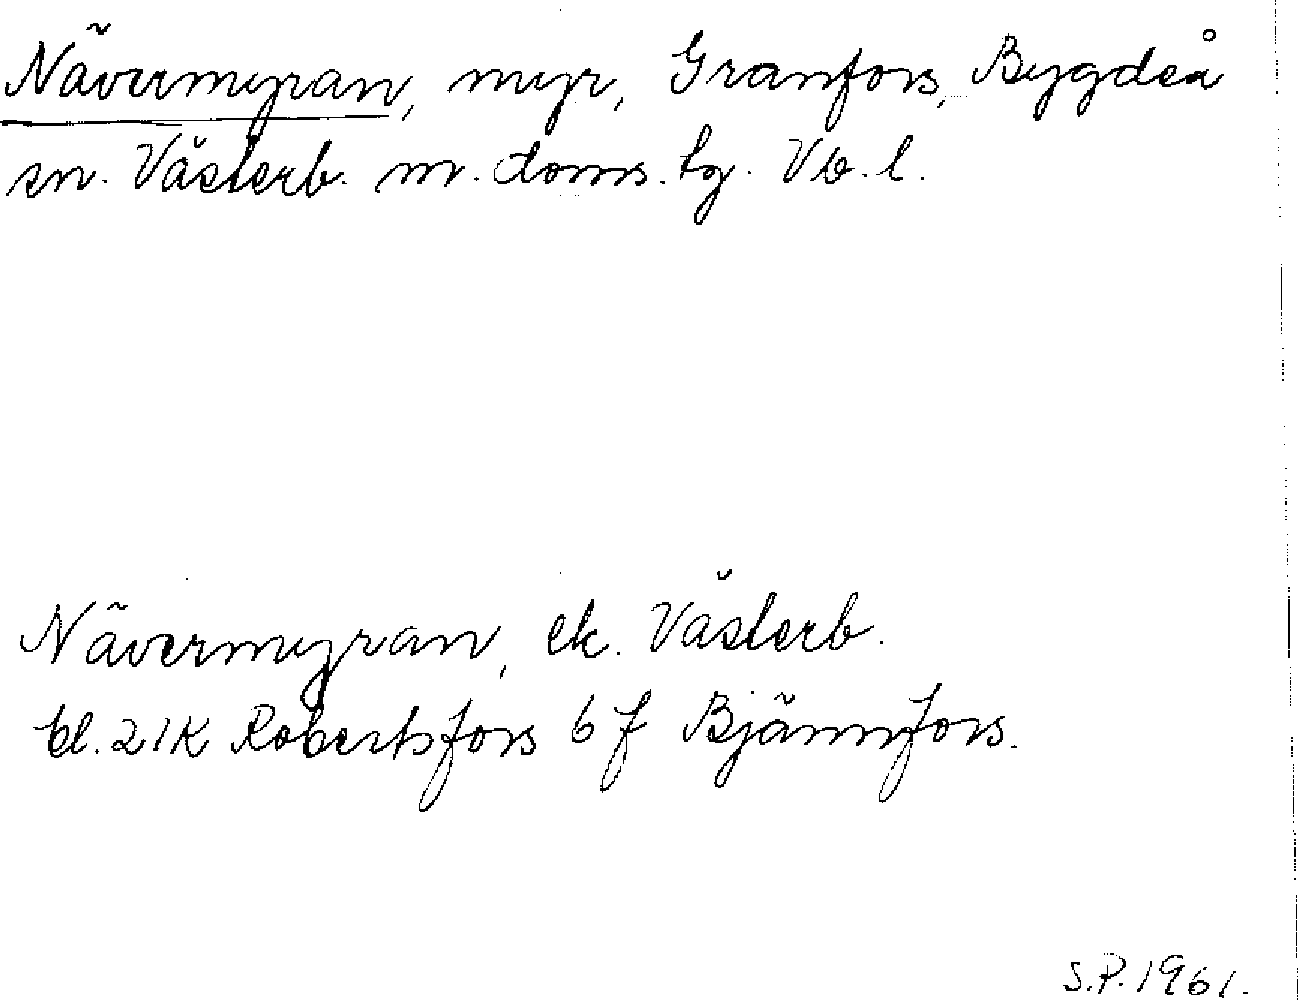 Nävermyran, myr, Granfors, Bygdeå
sn. Västerb. m. doms. lg. Vb. l.
Nävermyran, ek. Västerb.
bl. 21K Robertsfors 6 f Bjännfors.
S.P. 1961.